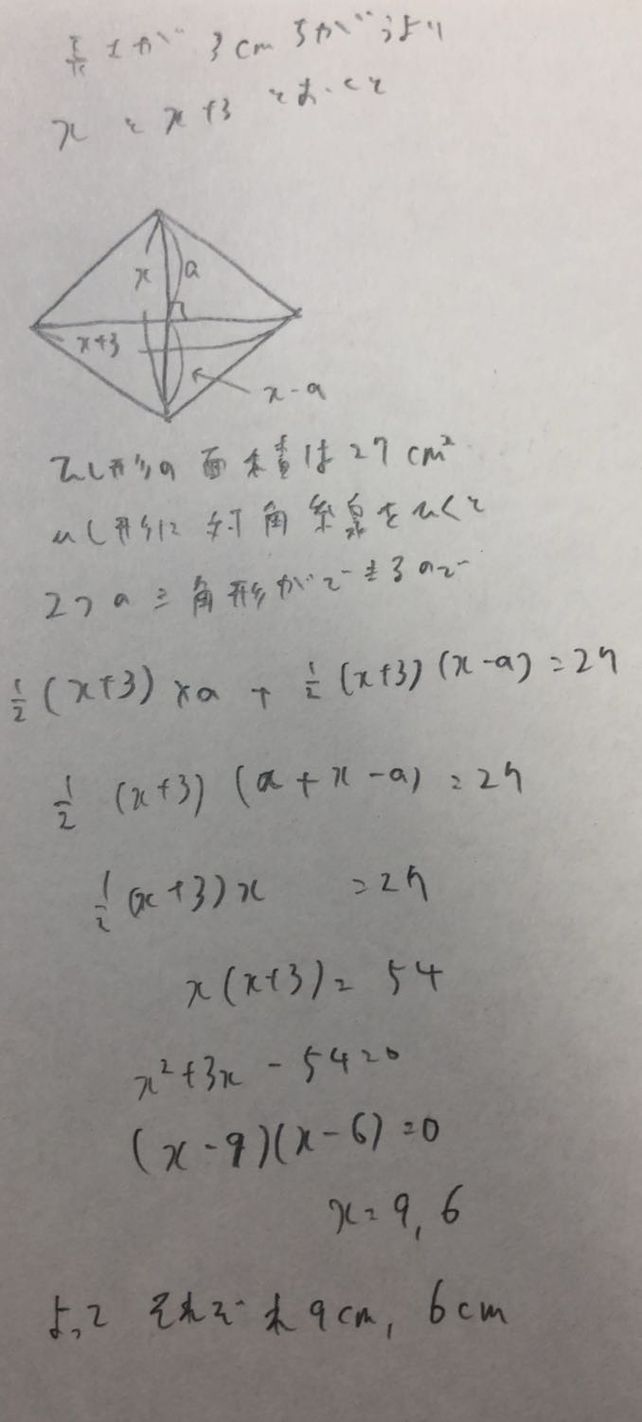 長さが 3cm ちがうより
x と x+3 とおくと
x
a
x+3
x-a
ひし形の面積は27cm²
ひし形に対角線をひくと
2つの三角形ができるので
1/2(x+3)×a + 1/2(x+3)(x-a)=27
1/2 (x+3)(a+x-a)=27
1/2(x+3)x =27
x(x+3)=54
x²+3x-54=0
(x-9)(x-6)=0
x=9,6
よって それぞれ9cm, 6cm